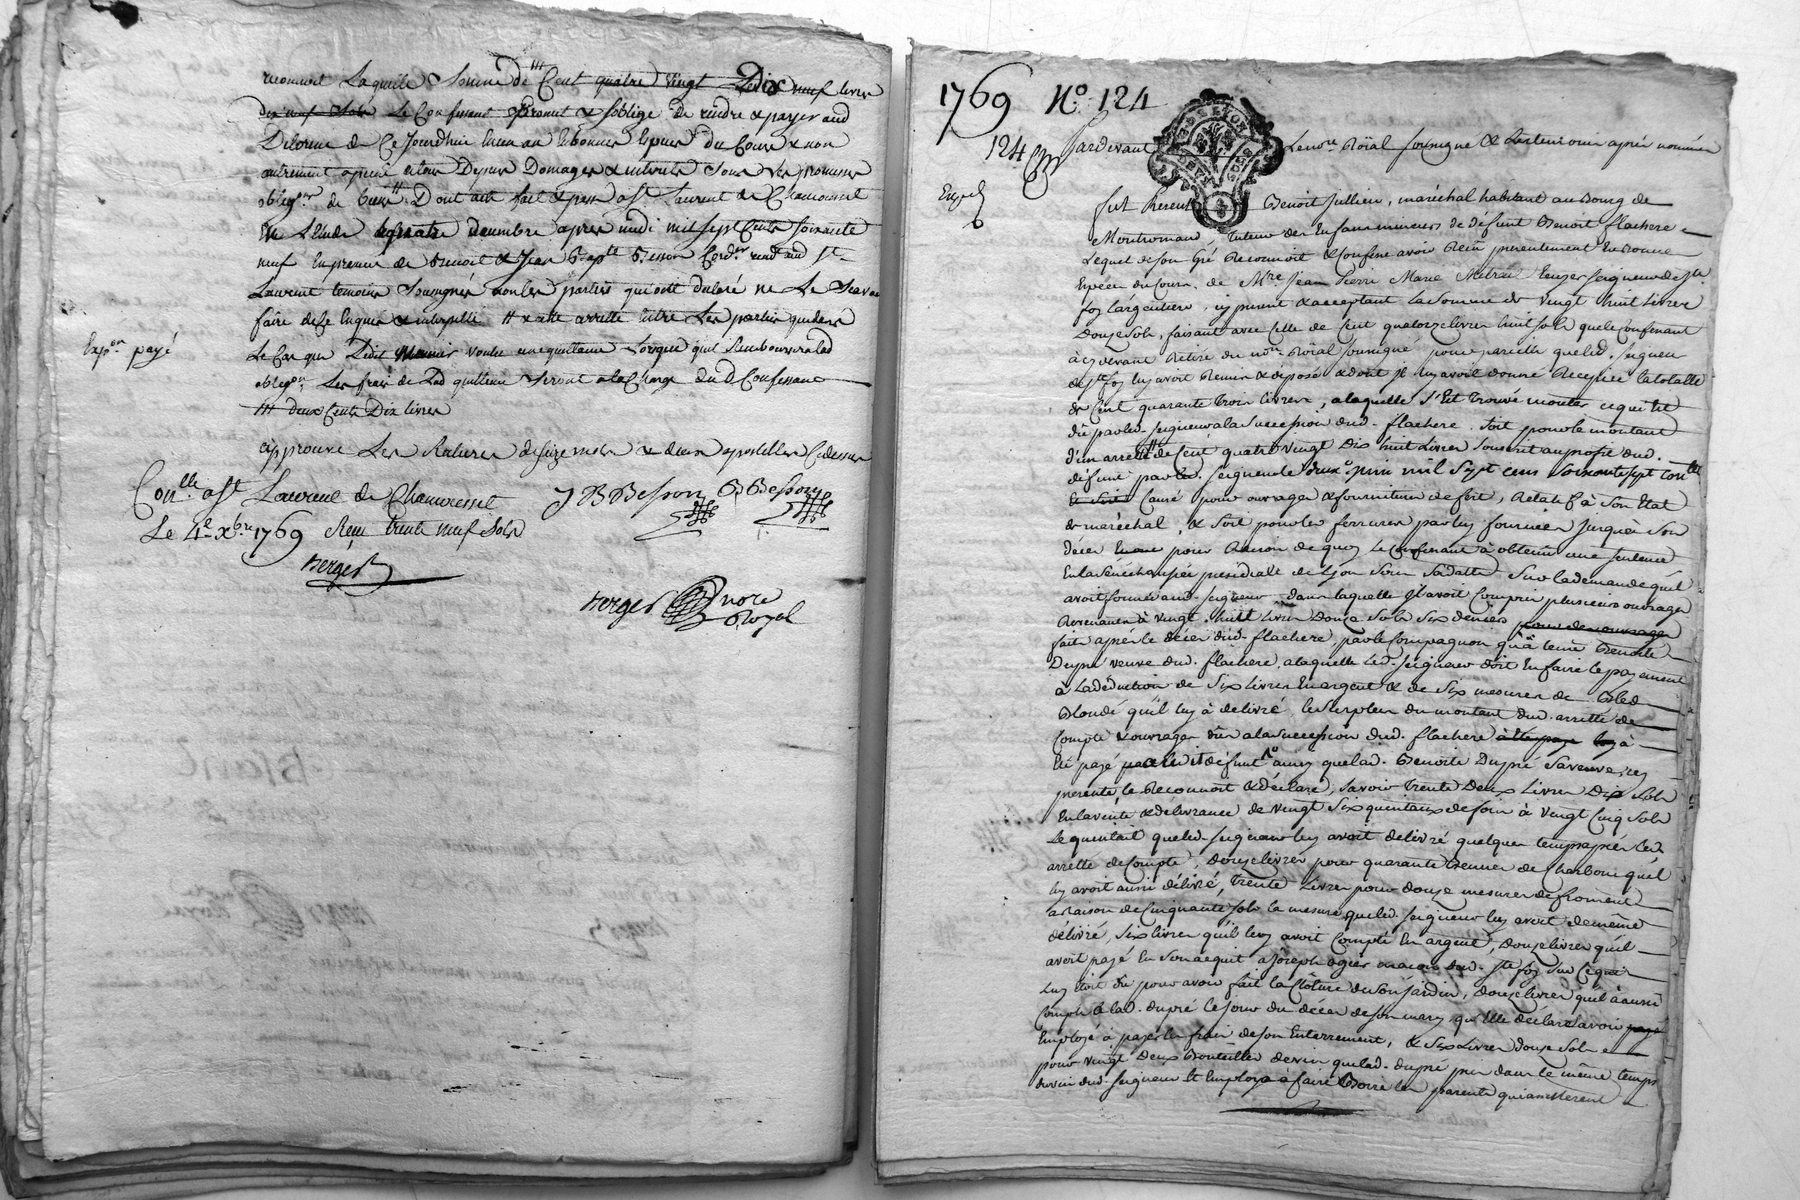 reconnoit Laquelle Somme de Cent quatre vingt Dix neuf livres
dix neuf sols Le Confessant Promet & soblige de rendre & payer aud
Delorme de Ce Jourdhuy en un an En bonnes Espèces du Cours & non
autrement apeine de tous Depens Domages & interets Sous les promesses
obligons de biens Dont acte fait & passé a St Laurent de Chamousset
En L'Etude le quatre decembre apres midi mil sept Cents soixante
neuf En presence de Benoit & Jean Bapte Besson Cordrs resid aud St
Laurent temoins Soussignés non les parties qui ont declaré ne Le Scavoir
faire de ce Enquis & interpellé & a été arretté Entre Les parties quedans
Le Cas que voulu une quittance Lorsque qu'il Remboursera lad
obligon Les frais de Lad quittance Seront a la Charge du d Confessant
deux Cents Dix livres
approuvé Les Ratures de seize mots & deux apostilles Cidessus
Expon payé
Conlle a St Laurent de Chamousset
Le 4e Xbre 1769 Reçu trente neuf Sols
Berger
J B Besson B Besson
Berger nore
Royal
1769 No. 124
124
Expé
Pardevant Le nore Roïal soussigné & Les temoins après nommés
fut Present Benoit Jullien, maréchal habitant au Bourg de
Montromand, Tuteur des Enfans mineurs de défunt Benoit flachere
Lequel de son gré Reconnoit & Confesse avoir Reçu presentement En bonnes
Espèces du Cours, de Mre Jean Pierre Marie Seigneur de Ste
foy Largentiere, icy present & acceptant La Somme de Vingt huit Livres
Douze Sols, faisant avec Celle de Cent quatorze livres huit sols que le Confessant
a cy devant Retiré du nore Roïal soussigné pour pareille que led. Seigneur
de Ste foy luy avoit Remis & deposé & dont Il luy avoit donné Recepicé la totalle
de Cent quarante Trois Livres, a laquelle S'Est Trouvé monter ce qui Est
dû par led. Seigneur a la Succession dud. flachere. Soit pour le montant
d'un arretté de Cent quatre vingt Dix huit Livres souscrit au profit dud.
défunt par led. Seigneur le deux juin mil Sept cens soixante sept
Causé pour ouvrages & fournitures de fert, Relatifs à Son Etat
de maréchal, & soit pour les ferrures par luy fournies Jusqu'à Son
décès pour Raison de quoy le Confessant à obtenu une sentence
En la Sénéchaussée présidialle de Lyon sous Sa datte Sur la demande qu'il
avoit formée aud. Seigneur dans laquelle Il avoit Compris plusieurs ouvrages
Revenants à Vingt huit Livres Douze Sols Six deniers pour des ouvrages
fait après le décès dud. flachere, par le Compagnon qu'à tenu Benoite
Dupré veuve dud. flachere, a laquelle Led. Seigneur doit En faire le payement
à La déduction de Six Livres En argent & de Six mesures de Bled
Blondé qu'il luy à delivré, le Surplus du montant dud. arretté de
Compte & ouvrages dûs a la Succession dud. flachere à
Eté payé par led. défunt ainsy que lad. Benoite Dupré Sa veuve, icy
presente, le Reconnoit & déclare, Savoir Trente Deux Livres Dix Sols
En la vente & délivrance de Vingt Six quintaux de foin à Vingt Cinq Sols
Le quintal que led. Seigneur luy avoit delivré quelque temps après led.
arretté de Compte, Douze livres pour quarante Bennes de Charbon qu'il
luy avoit aussi délivré, Trente Livres pour douze mesures de froment
a Raison de Cinquante sols la mesure que led. Seigneur luy avoit de même
délivré, Six livres qu'il luy avoit Compté En argent, Douze livres qu'il
avoit payé En Son acquit a Joseph ogier macon dud. Ste foy Sur Ce qui
luy Etoit dû pour avoir fait la Clôture de Son Jardin, Douze livres qu'il à aussi
Compté à la d. dupré le jour du décès de son mary, qu'Elle declare avoir payé
Employé à payer les frais de son Enterrement, & Six Livres Douze Sols
pour Vingt Deux Bouteilles de vin que lad. dupré prit dans le même temps
du vin dud. Seigneur Et Employa à faire Boire les parents qui assisterent